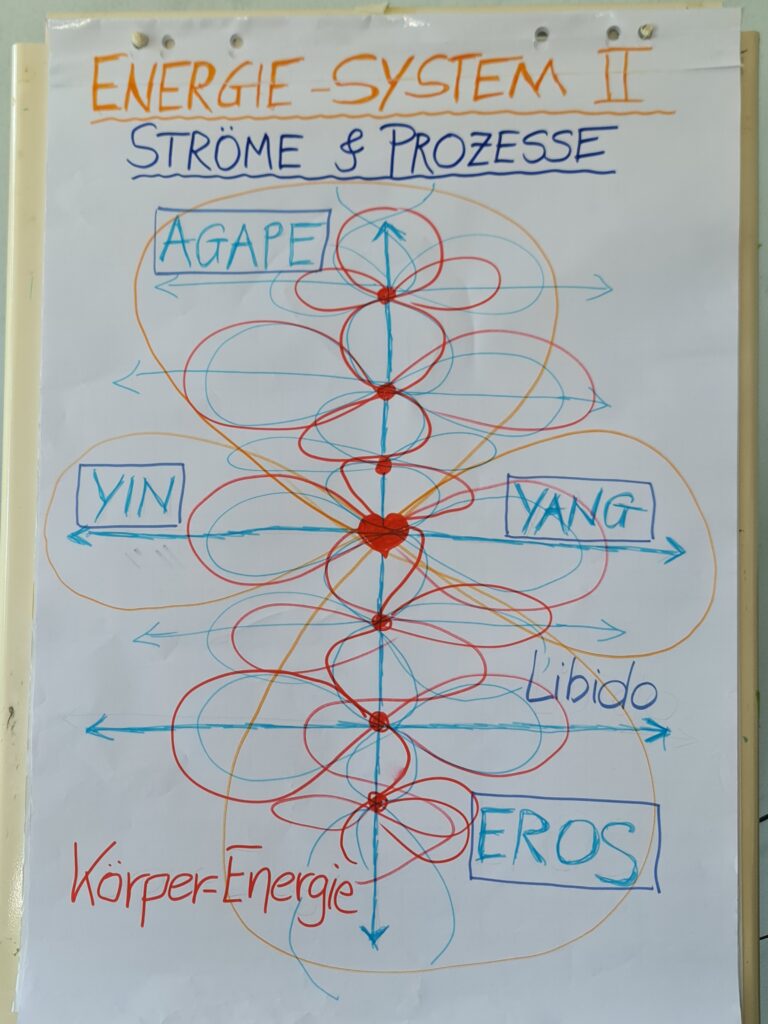 ENERGIE-SYSTEM II
STRÖME & PROZESSE
AGAPE
YIN
YANG
Libido
EROS
Körper-Energie